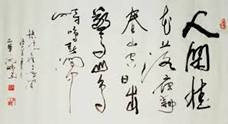 人閒桂
花落夜靜
春山空月出
驚山鳥
時鳴春澗中